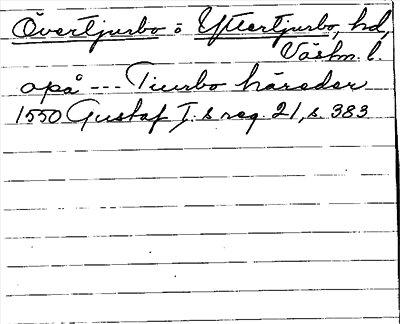 Övertjurbo o Yttertjurbo, hd,
Västm. l.
opå --- Tiurbo häreder
1550 Gustaf I. s reg. 21, s. 383